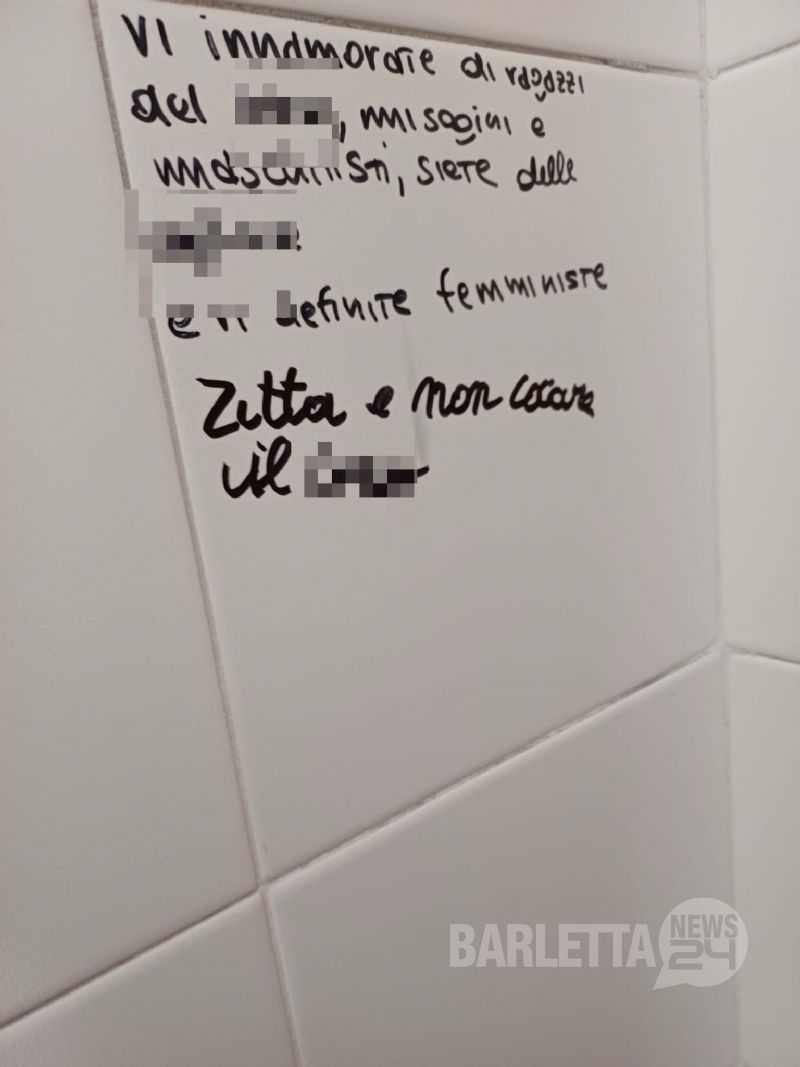 VI innamorate di ragazzi
del , misogini e
maschilisti, siete delle
e vi definite femministe
Zitta e non cacare
il
BARLETTA NEWS
24